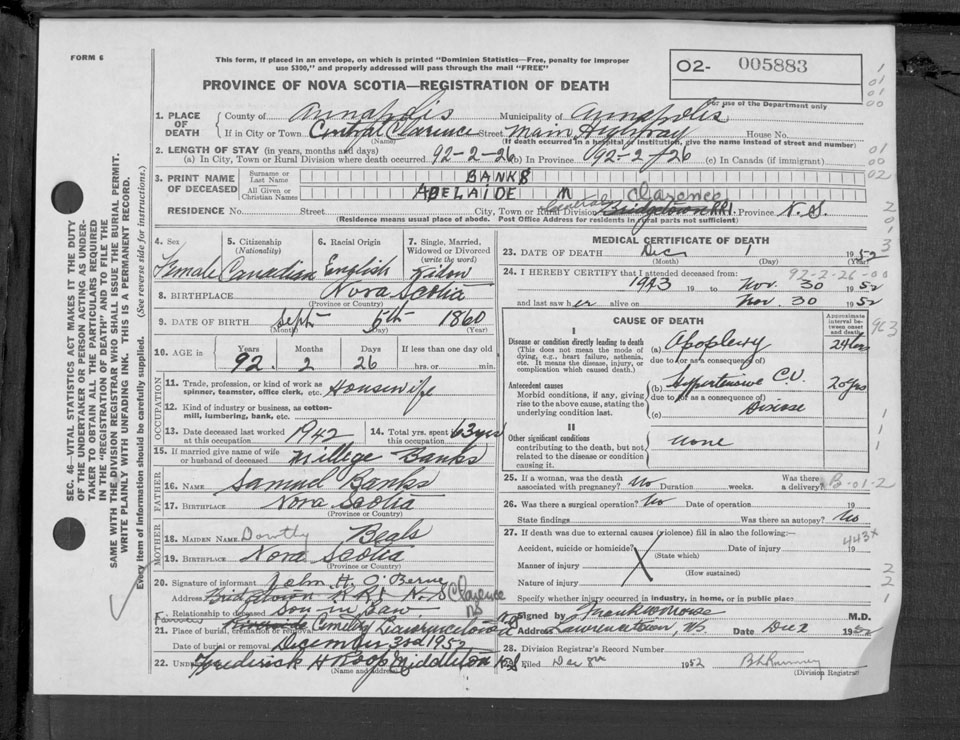 FORM 6
This form, if placed in an envelope, on which is printed "Dominion Statistics—Free, penalty for improper
use $300," and properly addressed will pass through the mail "FREE"
O2- 005883
PROVINCE OF NOVA SCOTIA—REGISTRATION OF DEATH
For use of the Department only
1. PLACE OF DEATH
County of Annapolis Municipality of Annapolis
If in City or Town Central Clarence Street Main Highway House No.
(Name) (If death occurred in a hospital or institution, give the name instead of street and number)
2. LENGTH OF STAY (in years, months and days)
(a) In City, Town or Rural Division where death occurred 92-2-26 (b) In Province 92-2-26 (c) In Canada (if immigrant)
3. PRINT NAME OF DECEASED
Surname or Last Name BANKS
All Given or Christian Names ADELAIDE M
Central Clarence
RESIDENCE No. Street City, Town or Rural Division Bridgetown RR1. Province N. S.
(Residence means usual place of abode. Post Office Address for residents in rural parts not sufficient)
4. Sex Female
5. Citizenship (Nationality) Canadian
6. Racial Origin English
7. Single, Married, Widowed or Divorced (write the word) Widow
8. BIRTHPLACE Nova Scotia
(Province or Country)
9. DATE OF BIRTH Sept 5th 1860
(Month) (Day) (Year)
10. AGE in Years 92 Months 2 Days 26 If less than one day old hrs. or min.
OCCUPATION
11. Trade, profession, or kind of work as spinner, teamster, office clerk, etc. Housewife
12. Kind of industry or business, as cotton-mill, lumbering, bank, etc.
13. Date deceased last worked at this occupation 1942
14. Total yrs. spent in this occupation 63 yrs
15. If married give name of wife or husband of deceased Millege Banks
FATHER
16. Name Samuel Banks
17. Birthplace Nova Scotia
(Province or Country)
MOTHER
18. MAIDEN NAME Dorothy Beals
19. BIRTHPLACE Nova Scotia
(Province or Country)
20. Signature of informant John H. O'Berne
Address Bridgetown RR1 N.S Clarence NS
Relationship to deceased Son in Law
21. Place of burial, cremation or removal Riverside Cemetery Lawrencetown
Date of burial or removal December 3rd 1952
22. Frederick H Roop Middleton N.S.
(Name and address)
MEDICAL CERTIFICATE OF DEATH
23. DATE OF DEATH Dec 1 1952
(Month) (Day) (Year)
24. I HEREBY CERTIFY that I attended deceased from: 92-2-26-00
1943 19 to Nov. 30 1952
and last saw her alive on Nov. 30 1952
CAUSE OF DEATH
Approximate interval between onset and death
I
Disease or condition directly leading to death (a) Apoplexy 24 hrs
(This does not mean the mode of dying, e.g., heart failure, asthenia, etc. It means the disease, injury, or complication which caused death.)
due to (or as a consequence of)
Antecedent causes (b) Hypertensive C.V. 20 yrs
Morbid conditions, if any, giving rise to the above cause, stating the underlying condition last.
due to (or as a consequence of)
(c) Disease
II
Other significant conditions none
contributing to the death, but not related to the disease or condition causing it.
25. If a woman, was the death associated with pregnancy? No Duration weeks. Was there a delivery?
B-01-2
26. Was there surgical operation? No Date of operation 19
State findings Was there an autopsy? No
27. If death was due to external causes (violence) fill in also the following:
443x
Accident, suicide or homicide? Date of injury 19
(State which)
Manner of injury
(How sustained)
Nature of injury
Specify whether injury occurred in industry, in home, or in public place
Signed by Frank W Morse M.D.
Address Lawrencetown, N.S. Date Dec 2 1952
28. Division Registrar's Record Number
Filed Dec 8th 1952
(Division Registrar)
SEC. 46—VITAL STATISTICS ACT MAKES IT THE DUTY
OF THE UNDERTAKER OR PERSON ACTING AS UNDER-
TAKER TO OBTAIN ALL THE PARTICULARS REQUIRED
IN THE "REGISTRATION OF DEATH" AND TO FILE THE
SAME WITH THE DIVISION REGISTRAR WHO SHALL ISSUE THE BURIAL PERMIT.
WRITE PLAINLY WITH UNFADING INK. THIS IS A PERMANENT RECORD.
Every item of information should be carefully supplied. (See reverse side for instructions.)